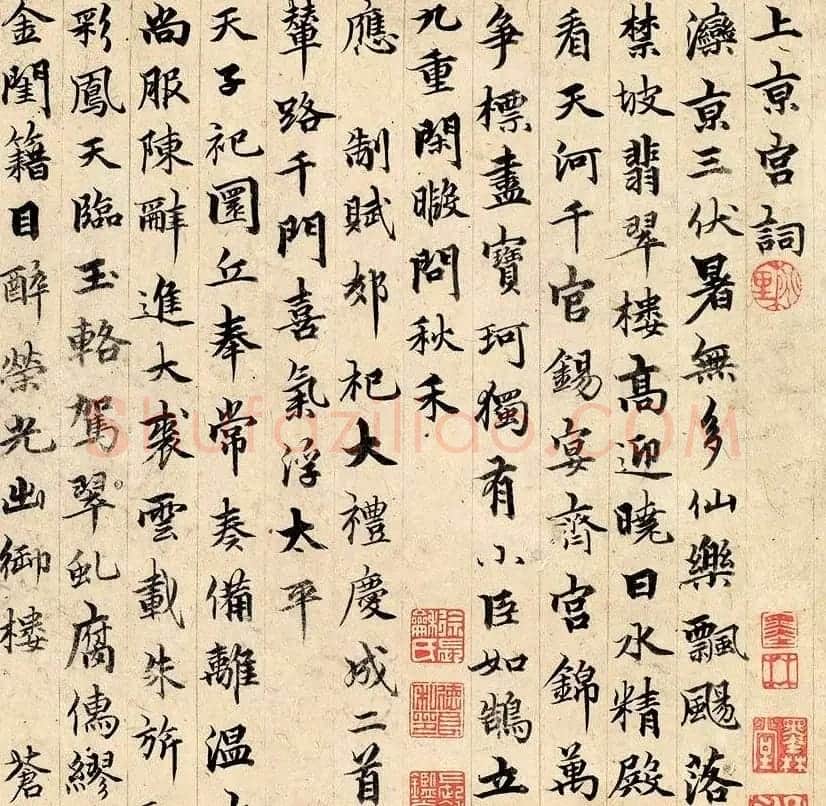 上亰宮詞
灤亰三伏暑無多仙樂飄颺落
禁坡翡翠樓高迎曉日水精殿
看天河千官錫宴齊宮錦萬
爭標盡寶珂獨有小臣如鵠立
九重閑暇問秋禾
應 制賦郊祀大禮慶成二首
輦路千門喜氣浮太平
天子祀圜丘奉常奏備離溫
尚服陳辭進大裘雲載朱旂
彩鳳天臨玉輅駕翠虬腐儒繆
金閨籍目醉榮光出御樓 蒼
shufaziliao.COM